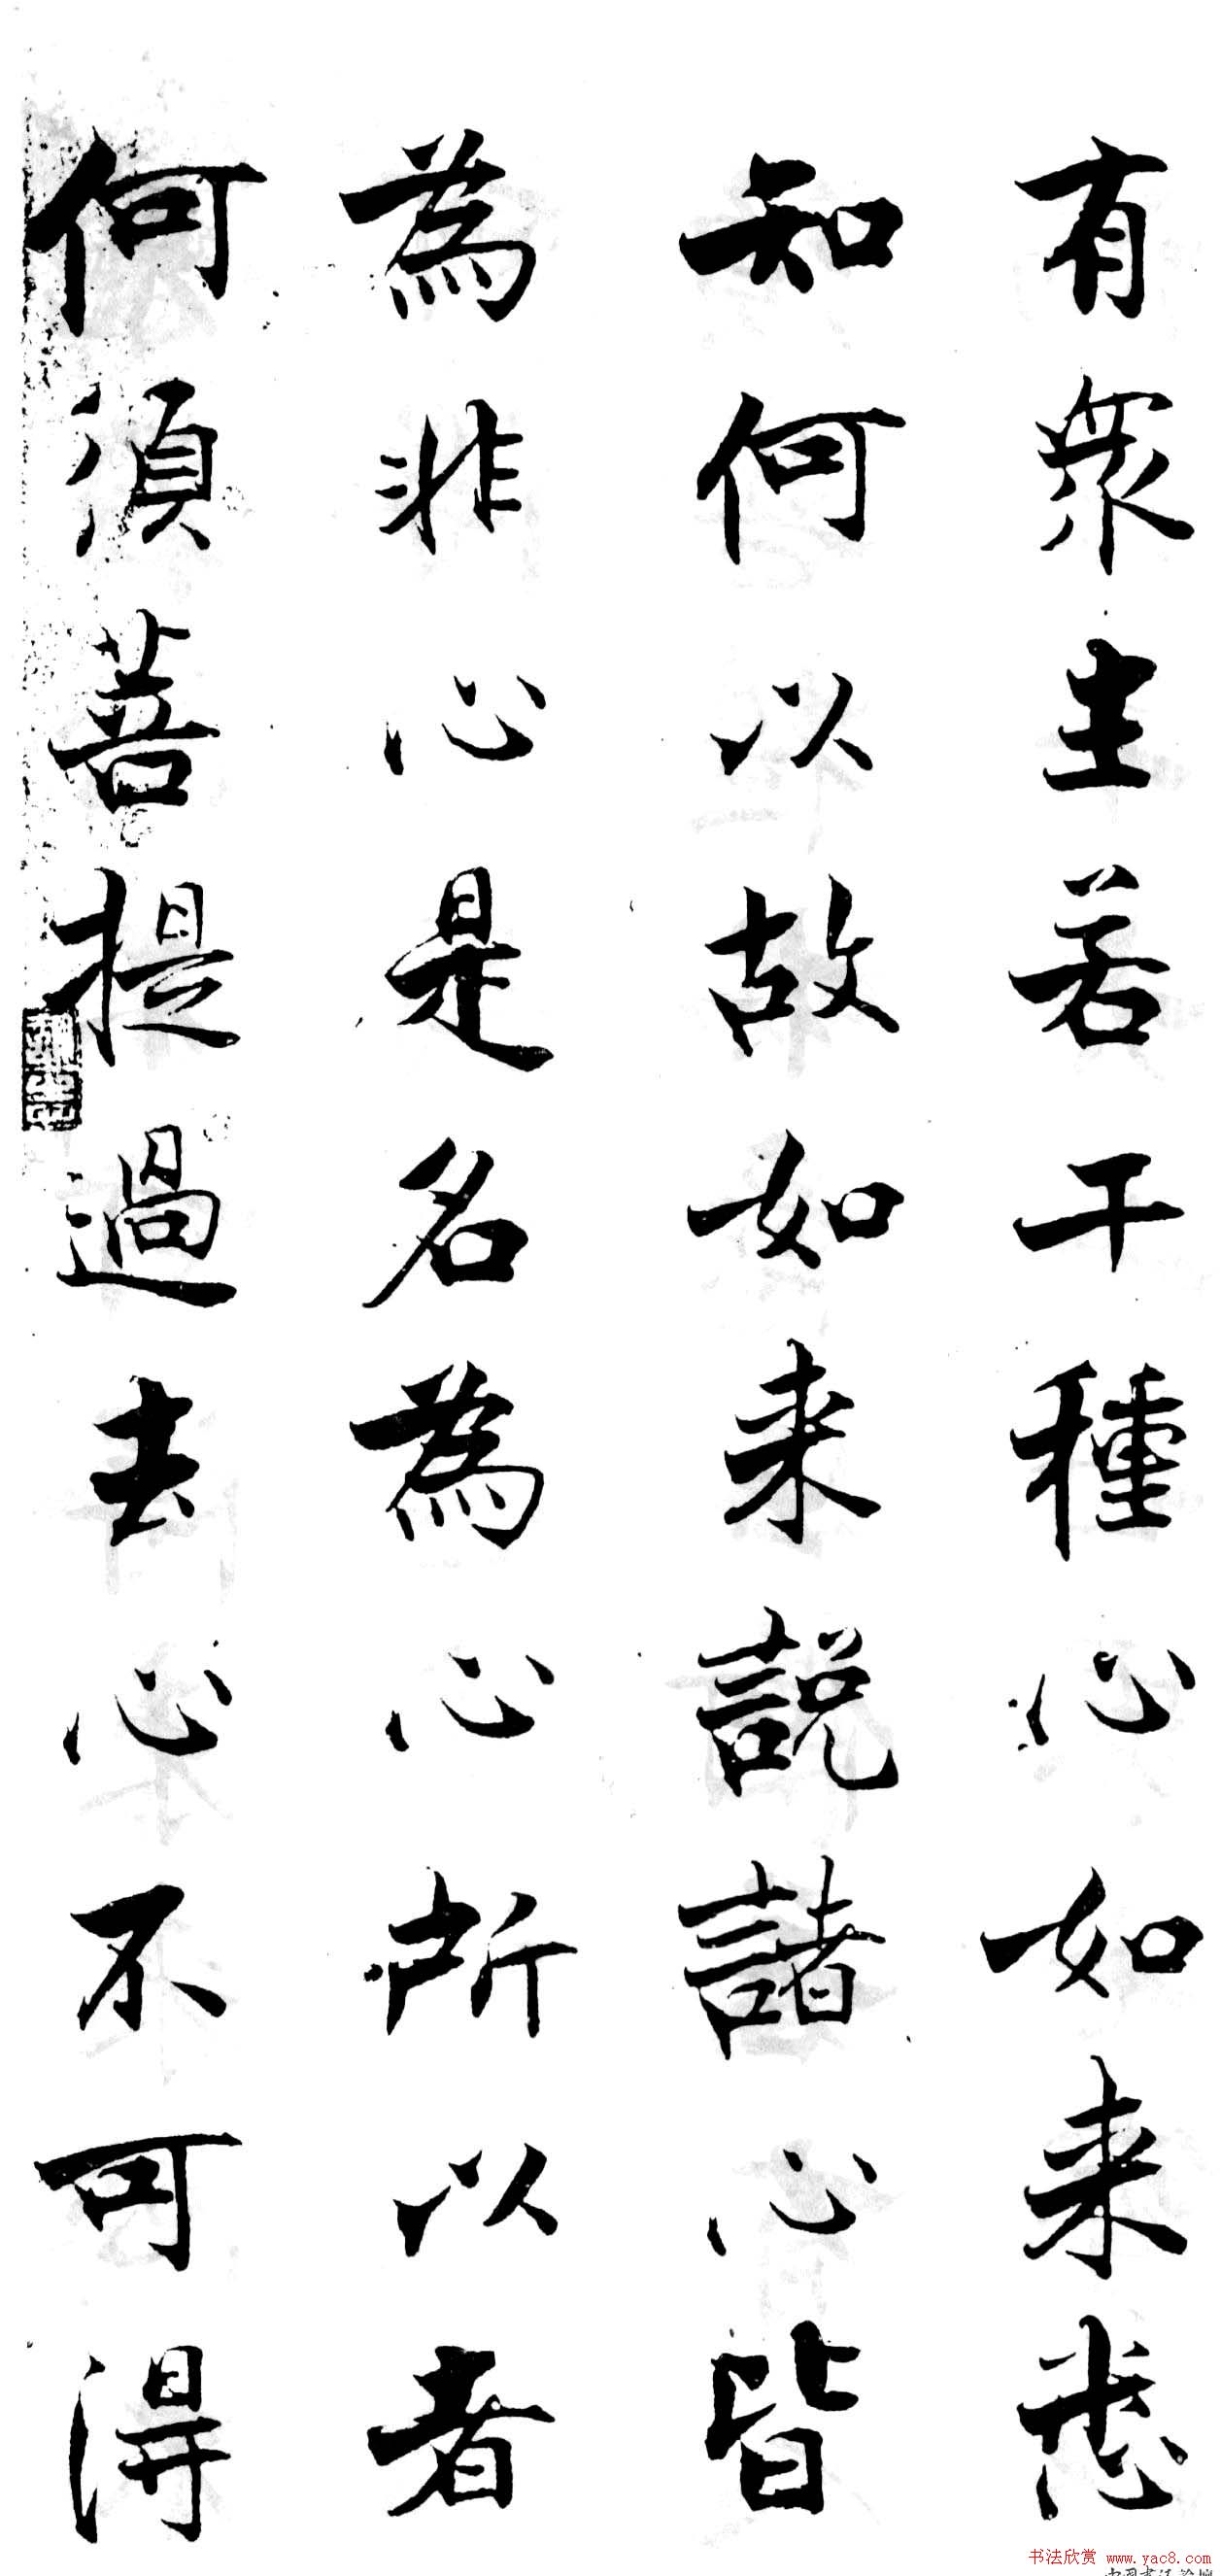 有眾生若干種心如来悉
知何以故如来說諸心皆
為非心是名為心所以者
何須菩提過去心不可得
书法欣赏 www.yac8.com